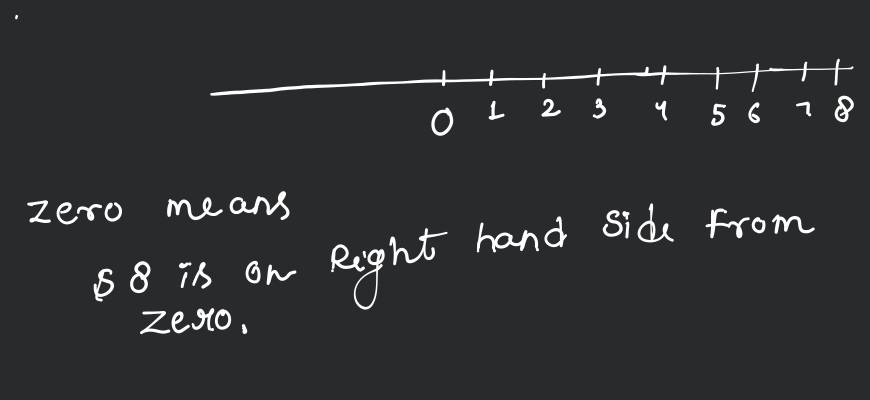 0 1 2 3 4 5 6 7 8
zero means
$ 8 is on Right hand Side From
zero.